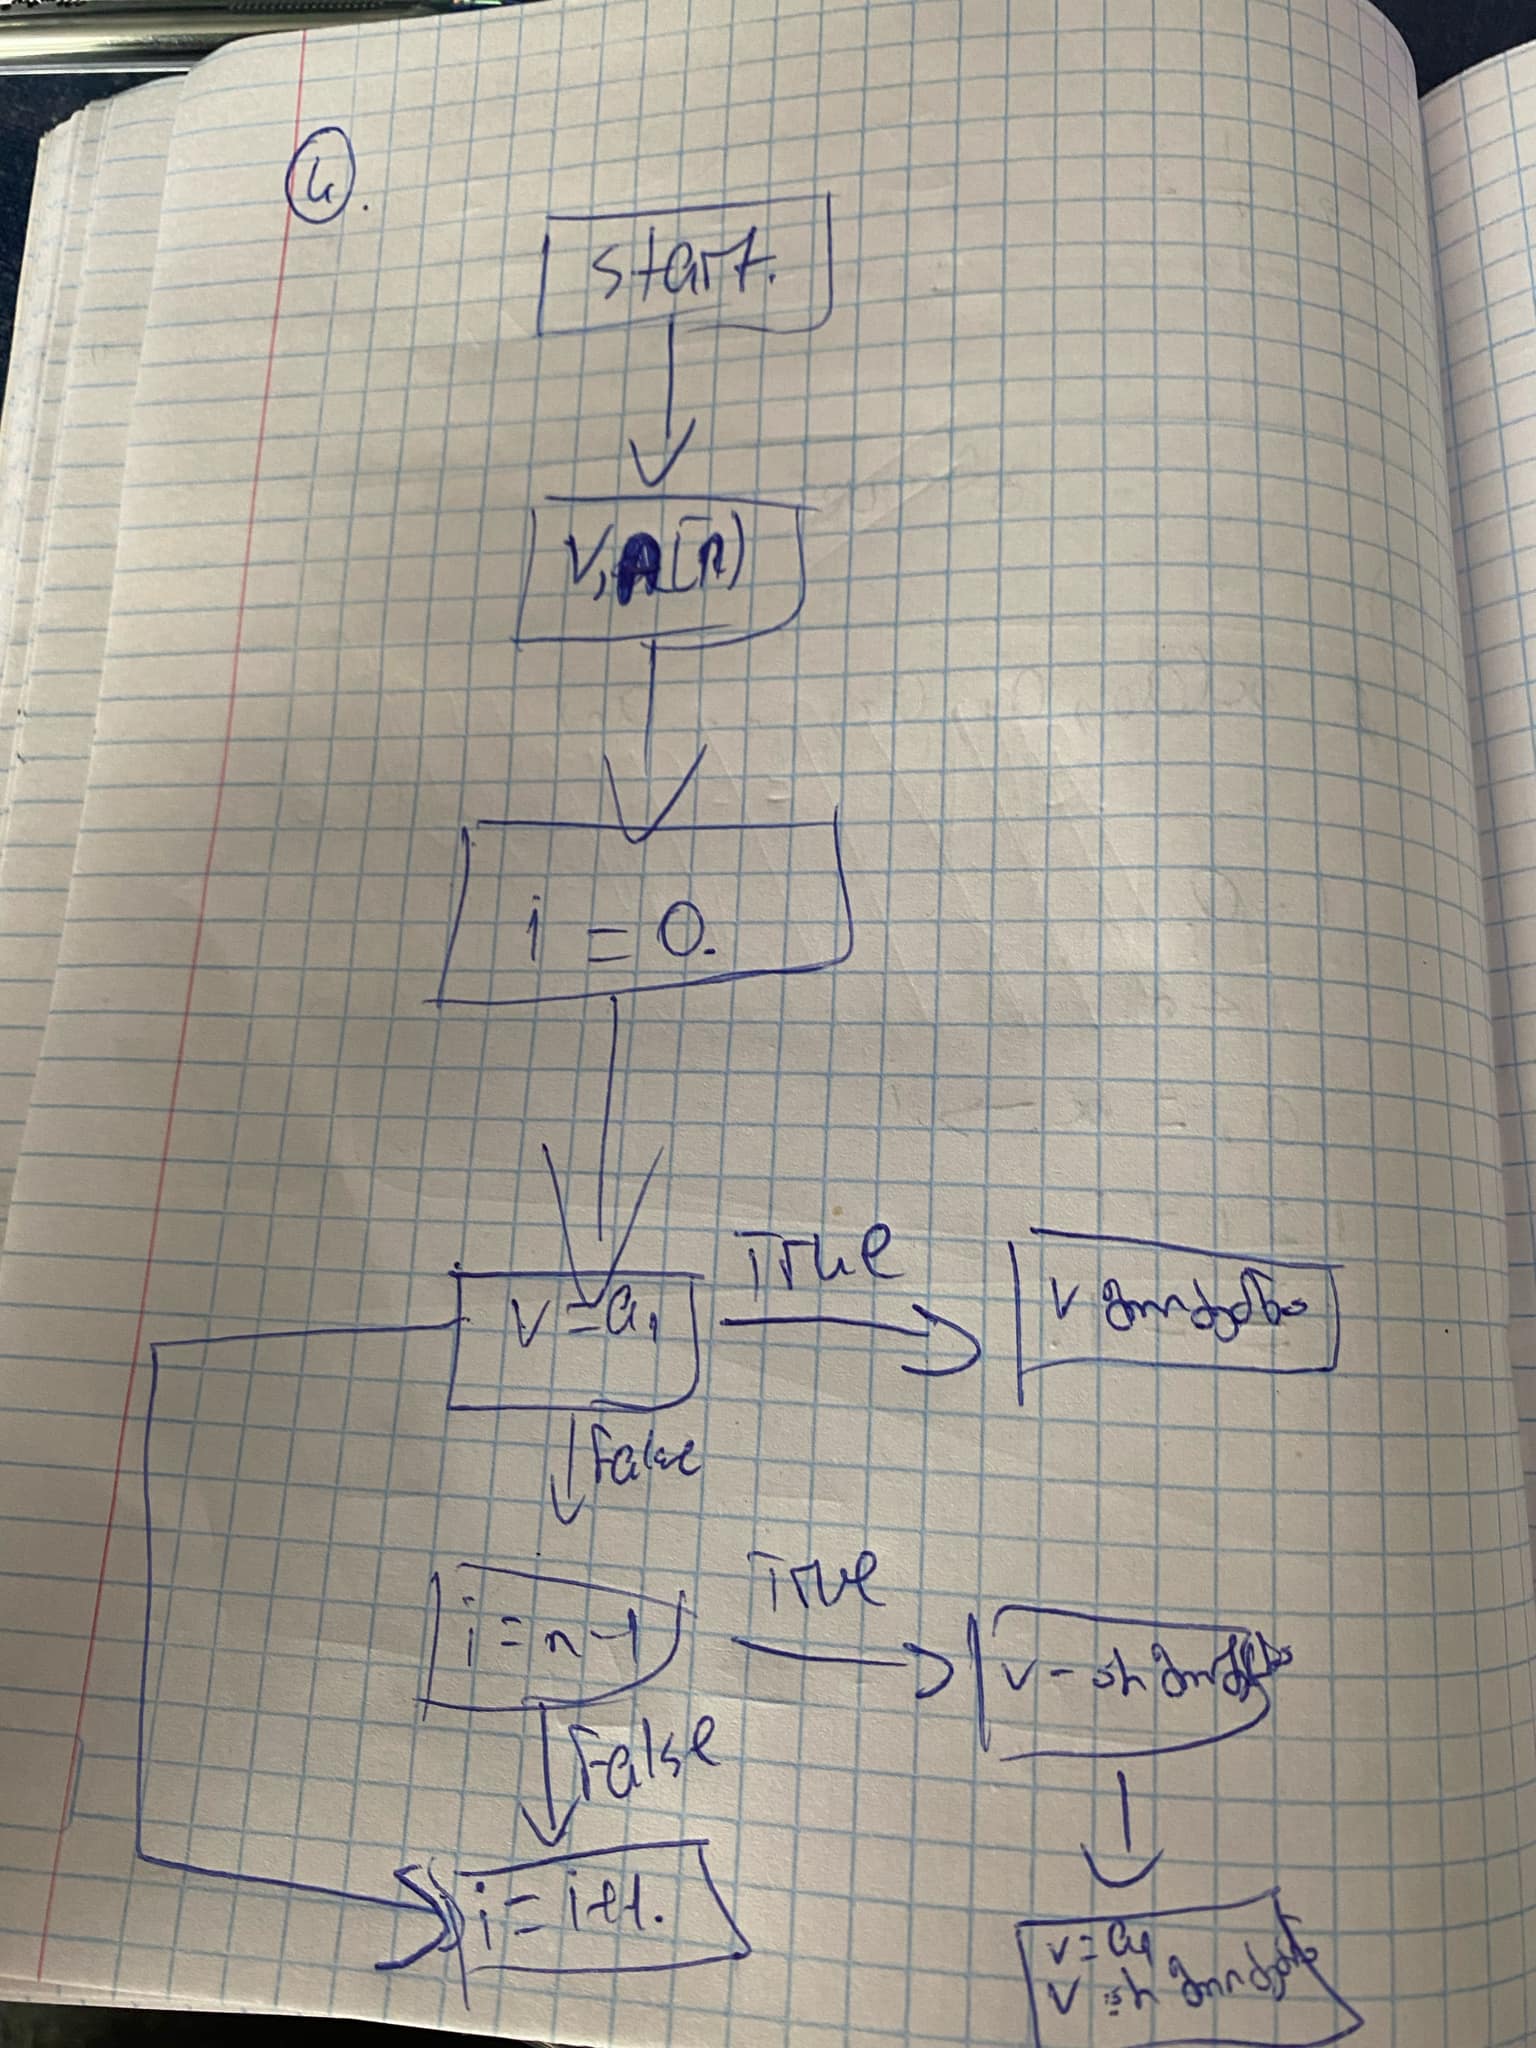 4.
start.
V, A[n]
i = 0.
v = a1
True
v მოიძებნა
False
i = n-1
True
v - არ მოიძებნა
False
i = i+1.
v = a1
v არ მოიძებნა